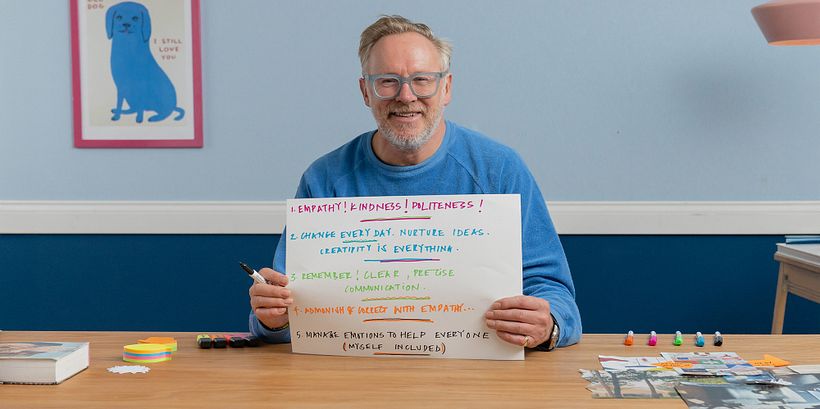 DOG
I STILL
LOVE
YOU
1. EMPATHY! KINDNESS! POLITENESS!
2. CHANGE EVERY DAY. NURTURE IDEAS.
CREATIVITY IS EVERYTHING.
3. REMEMBER! CLEAR, PRECISE
COMMUNICATION.
4. ADMONISH & CORRECT WITH EMPATHY...
5. MANAGE EMOTIONS TO HELP EVERYONE
(MYSELF INCLUDED)